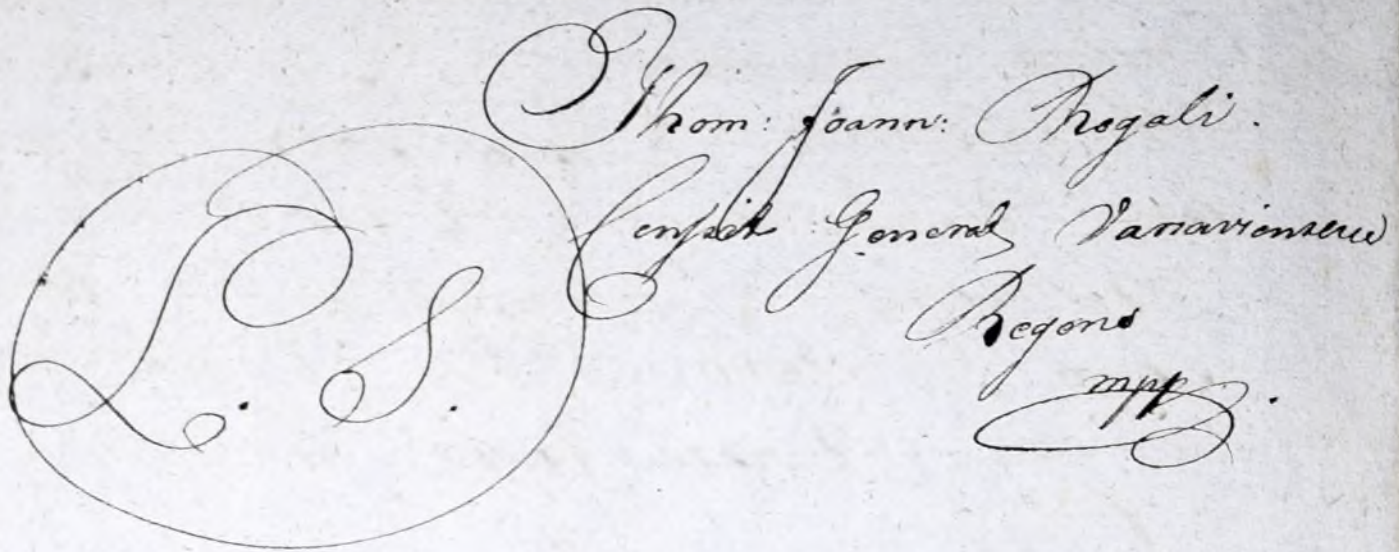 Thom: Joann: Rogali.
General Varaviensis
Regens
mpp.
L. S.